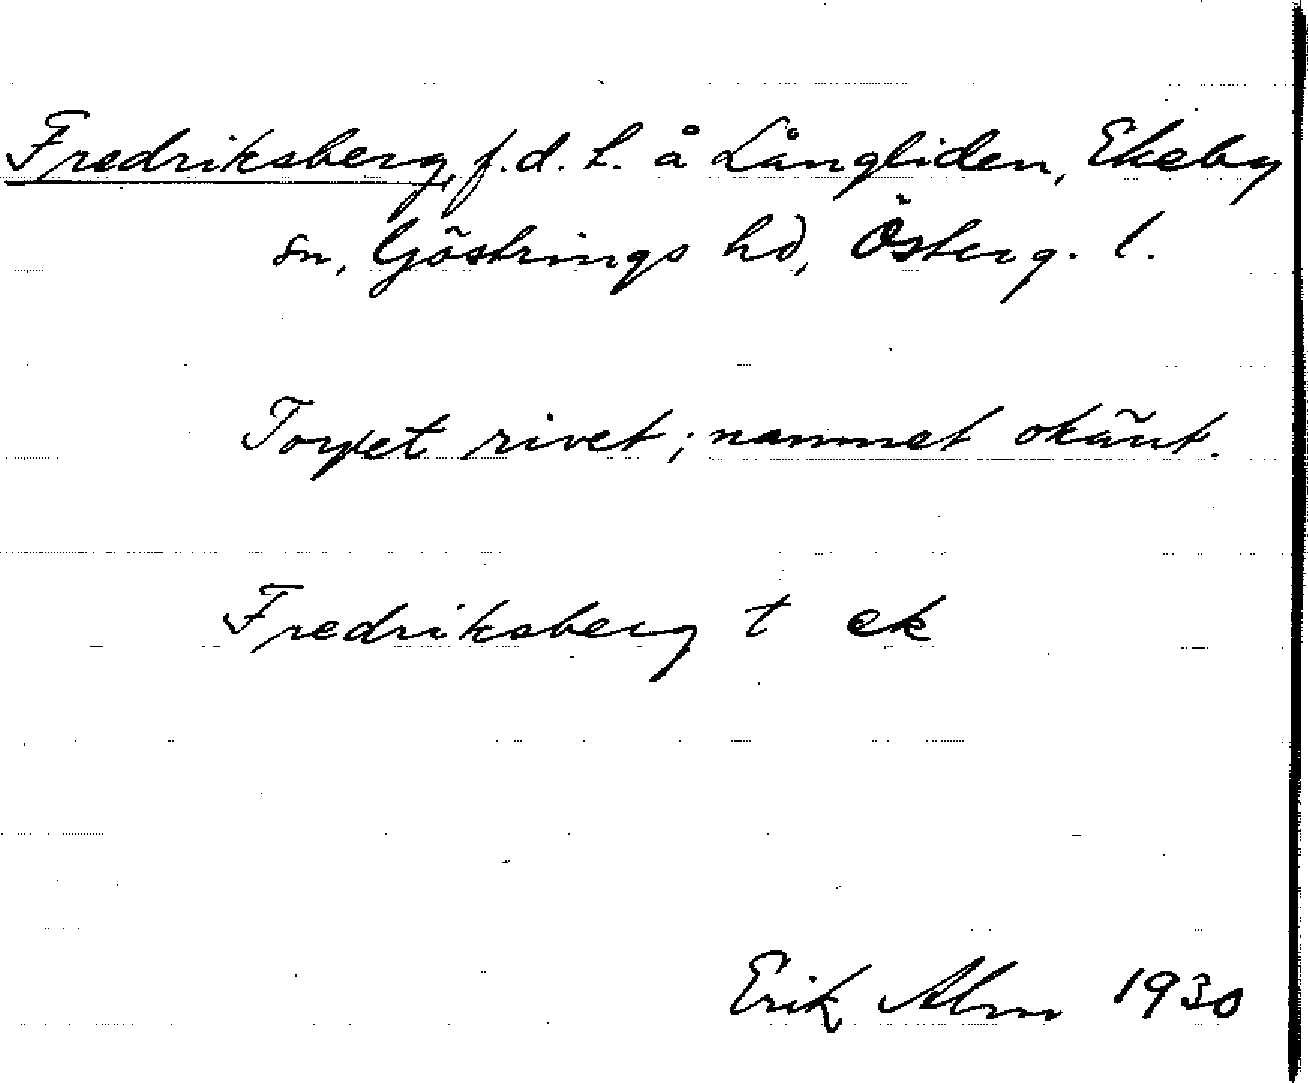 Fredriksberg, f. d. t. å Långliden, Ekeby
sn, Göstrings hd, Österg. l.
Torpet rivet; namnet okänt.
Fredriksberg t ek
Erik Alm 1930